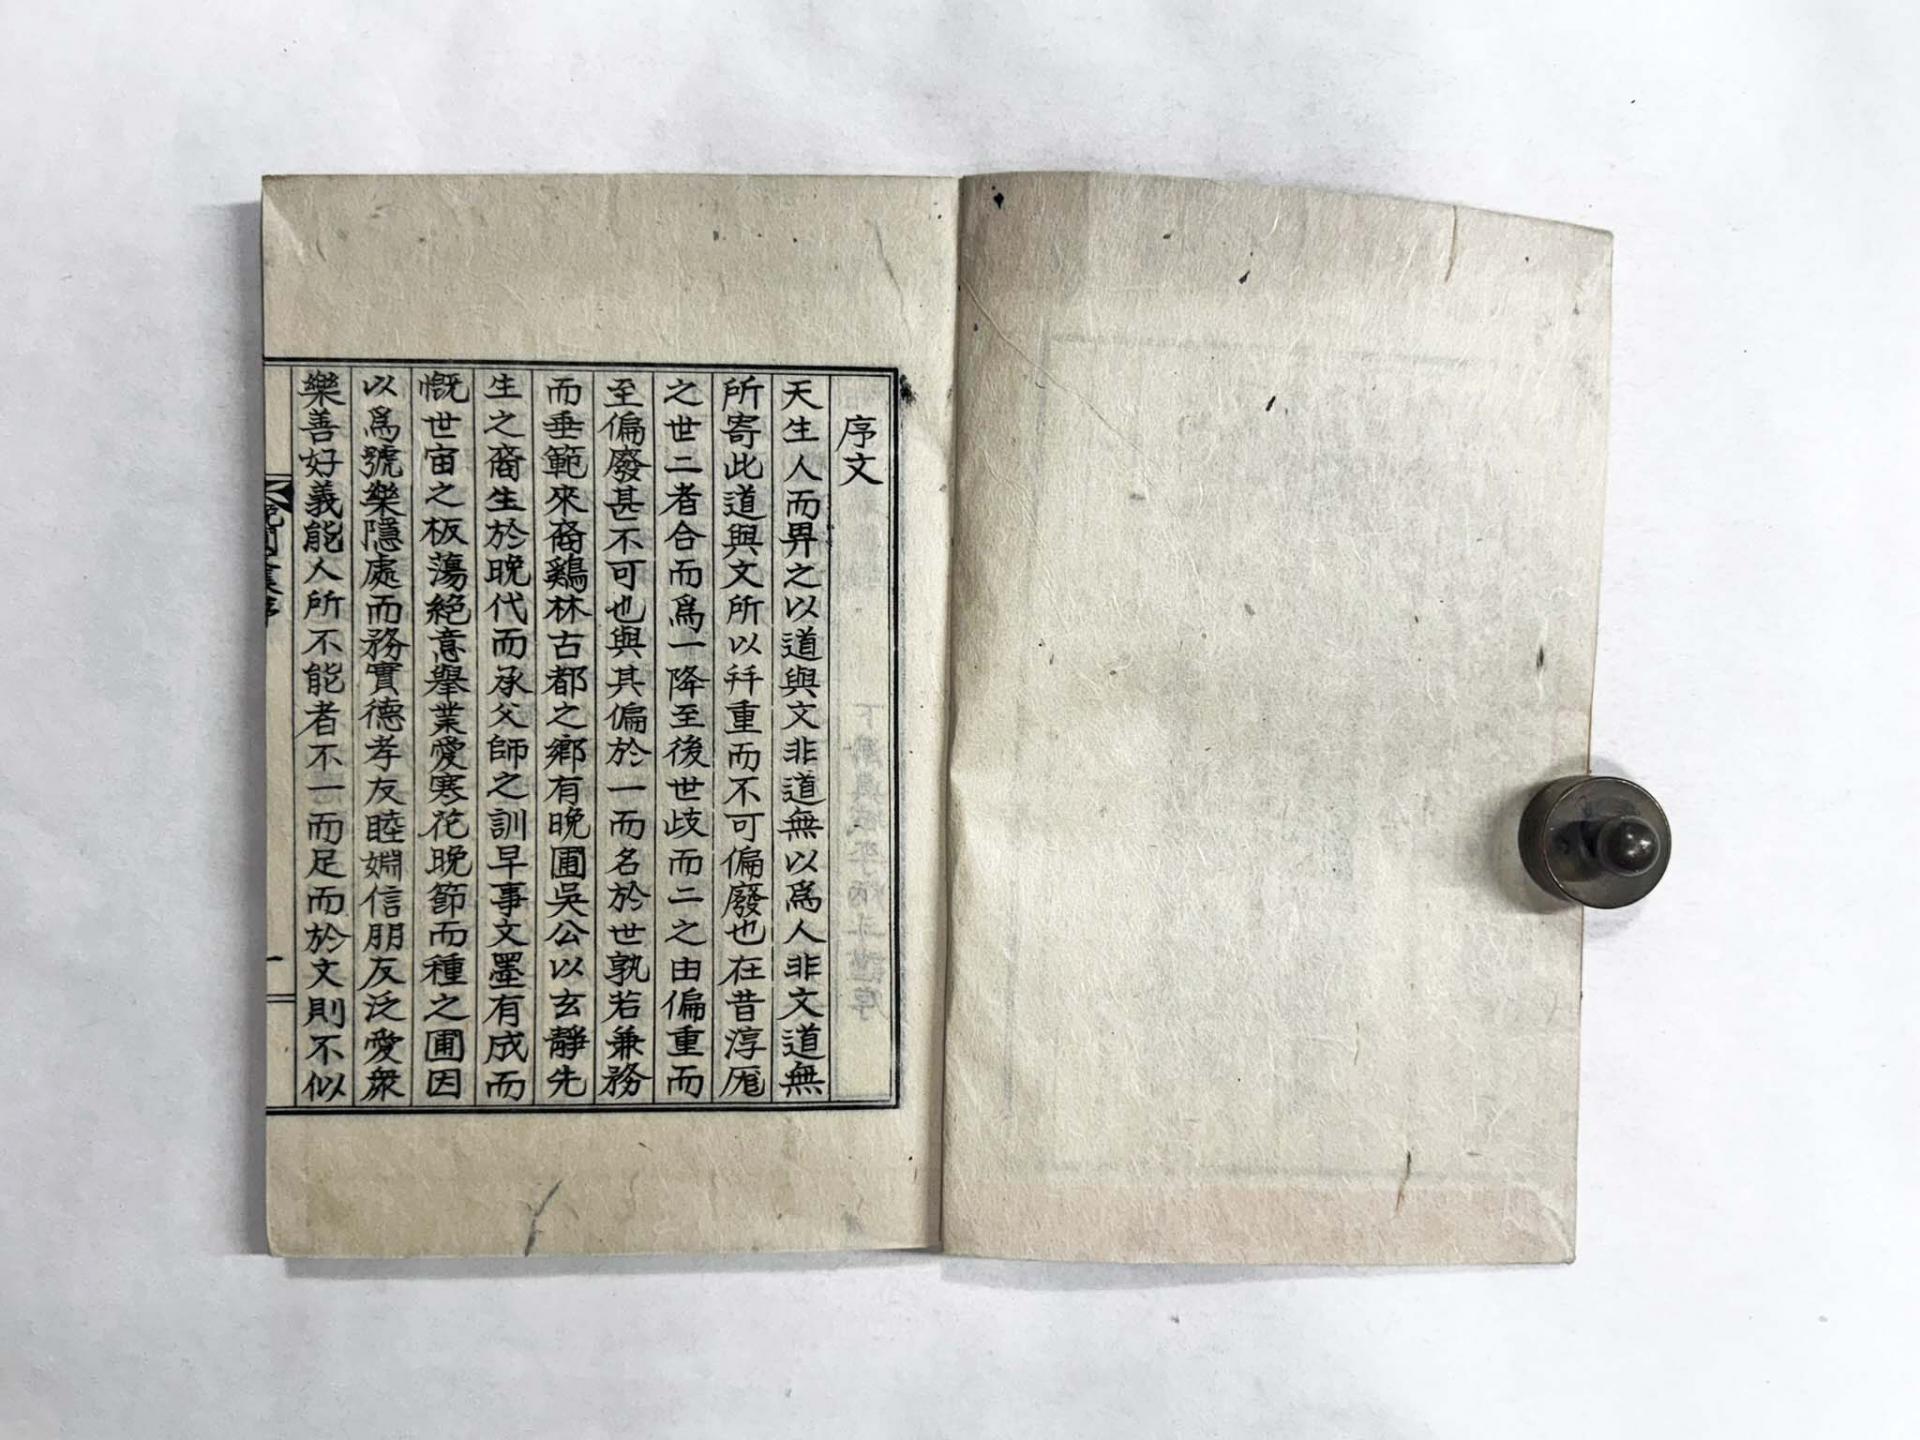 序文
天生人而畀之以道與文非道無以爲人非文道無
所寄此道與文所以幷重而不可偏廢也在昔淳厖
之世二者合而爲一降至後世歧而二之由偏重而
至偏廢甚不可也與其偏於一而名於世孰若兼務
而垂範來裔鷄林古都之鄕有晚圃吳公以玄靜先
生之裔生於晚代而承父師之訓早事文墨有成而
慨世宙之板蕩絕意擧業愛寒花晚節而種之圃因
以爲號樂隱處而務實德孝友睦婣信朋友泛愛衆
樂善好義能人所不能者不一而足而於文則不似
晚圃集序
一